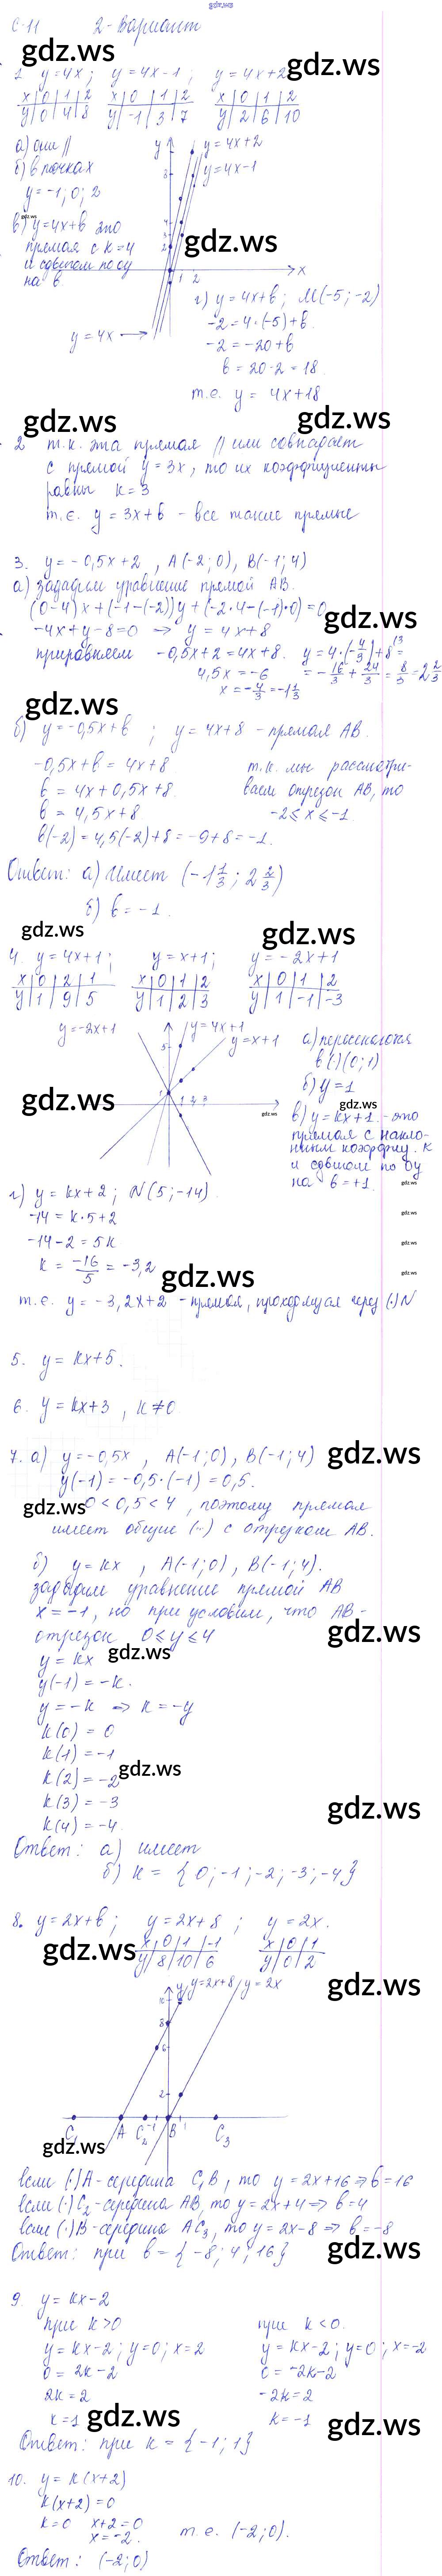 gdz.ws
С-11 2-Вариант
gdz.ws
1. y=4x; y=4x-1; y=4x+2
gdz.ws
x|0|1|2 x|0|1|2 x|0|1|2
y|0|4|8 y|-1|3|7 y|2|6|10
а) они ||
y=4x+2
б) в точках
y=4x-1
y=-1; 0; 2
в) y=4x+b это
прямая с k=4
и сдвигом по оу
на b.
gdz.ws
г) y=4x+b; M(-5;-2)
-2=4·(-5)+b
-2=-20+b
y=4x
b=20-2=18.
т.е. y=4x+18
gdz.ws
gdz.ws
2 т.к. эта прямая || или совпадает
с прямой y=3x, то их коэффициенты
равны k=3
т.е. y=3x+b - все такие прямые
3. y=-0,5x+2, A(-2;0), B(-1;4)
а) зададим уравнение прямой AB.
(0-4)x+(-1-(-2))y+(-2·4-(-1)·0)=0
gdz.ws
-4x+y-8=0 → y=4x+8
приравняем -0,5x+2=4x+8. y=4·(-4/3)+8=
4,5x=-6 =-16/3+24/3=8/3=2 2/3
x=-4/3=-1 1/3
gdz.ws
б) y=-0,5x+b; y=4x+8 - прямая AB.
-0,5x+b=4x+8 т.к. мы рассматри-
b=4x+0,5x+8. ваем отрезок AB, то
b=4,5x+8 -2≤x≤-1
b(-2)=4,5(-2)+8=-9+8=-1.
Ответ: а) имеет (-1 1/3; 2 2/3)
б) b=-1.
gdz.ws
gdz.ws
4. y=4x+1; y=x+1; y=-2x+1
x|0|2|1 x|0|1|2 x|0|1|2
y|1|9|5 y|1|2|3 y|1|-1|-3
y=-2x+1 y=4x+1
y=x+1
а) пересекаются
в (·) (0;1)
б) y=1
gdz.ws
gdz.ws
в) y=kx+1 - это
прямая с накло-
нным коэффиц. k
и сдвигом по оу
на b=+1.
г) y=kx+2; N(5;-14).
-14=k·5+2
-14-2=5k
k=-16/5=-3,2
gdz.ws
т.е. y=-3,2x+2 - прямая, проходящая через (·) N
5. y=kx+5.
6. y=kx+3, k≠0
7. а) y=-0,5x, A(-1;0), B(-1;4)
gdz.ws
y(-1)=-0,5·(-1)=0,5.
gdz.ws
0<0,5<4, поэтому прямая
имеет общие (··) с отрезком AB.
б) y=kx, A(-1;0), B(-1;4).
зададим уравнение прямой AB
x=-1, но при условии, что AB-
отрезок 0≤y≤4
gdz.ws
gdz.ws
y=kx
y(-1)=-k.
y=-k → k=-y
k(0)=0
k(1)=-1
k(2)=-2
gdz.ws
k(3)=-3
k(4)=-4.
gdz.ws
Ответ: а) имеет
б) k={0;-1;-2;-3;-4}
8. y=2x+b; y=2x+8; y=2x.
gdz.ws
x|0|1|-1 x|0|1
y|8|10|6 y|0|2
gdz.ws
y=2x+8 y=2x
C1 A C2 -1 B 1 C3
gdz.ws
если (·) A - середина C1B, то y=2x+16 ⇒ b=16
если (·) C2 - середина AB, то y=2x+4 ⇒ b=4
если (·) B - середина AC3, то y=2x-8 ⇒ b=-8
Ответ: при b={-8; 4; 16}
gdz.ws
9. y=kx-2
при k>0 при k<0.
y=kx-2; y=0; x=2 y=kx-2; y=0; x=-2
0=2k-2 0=-2k-2
2k=2 -2k=2
k=1 k=-1
gdz.ws
gdz.ws
Ответ: при k={-1; 1}
10. y=k(x+2)
k(x+2)=0
k=0 x+2=0
x=-2. т.е. (-2;0).
Ответ: (-2;0)